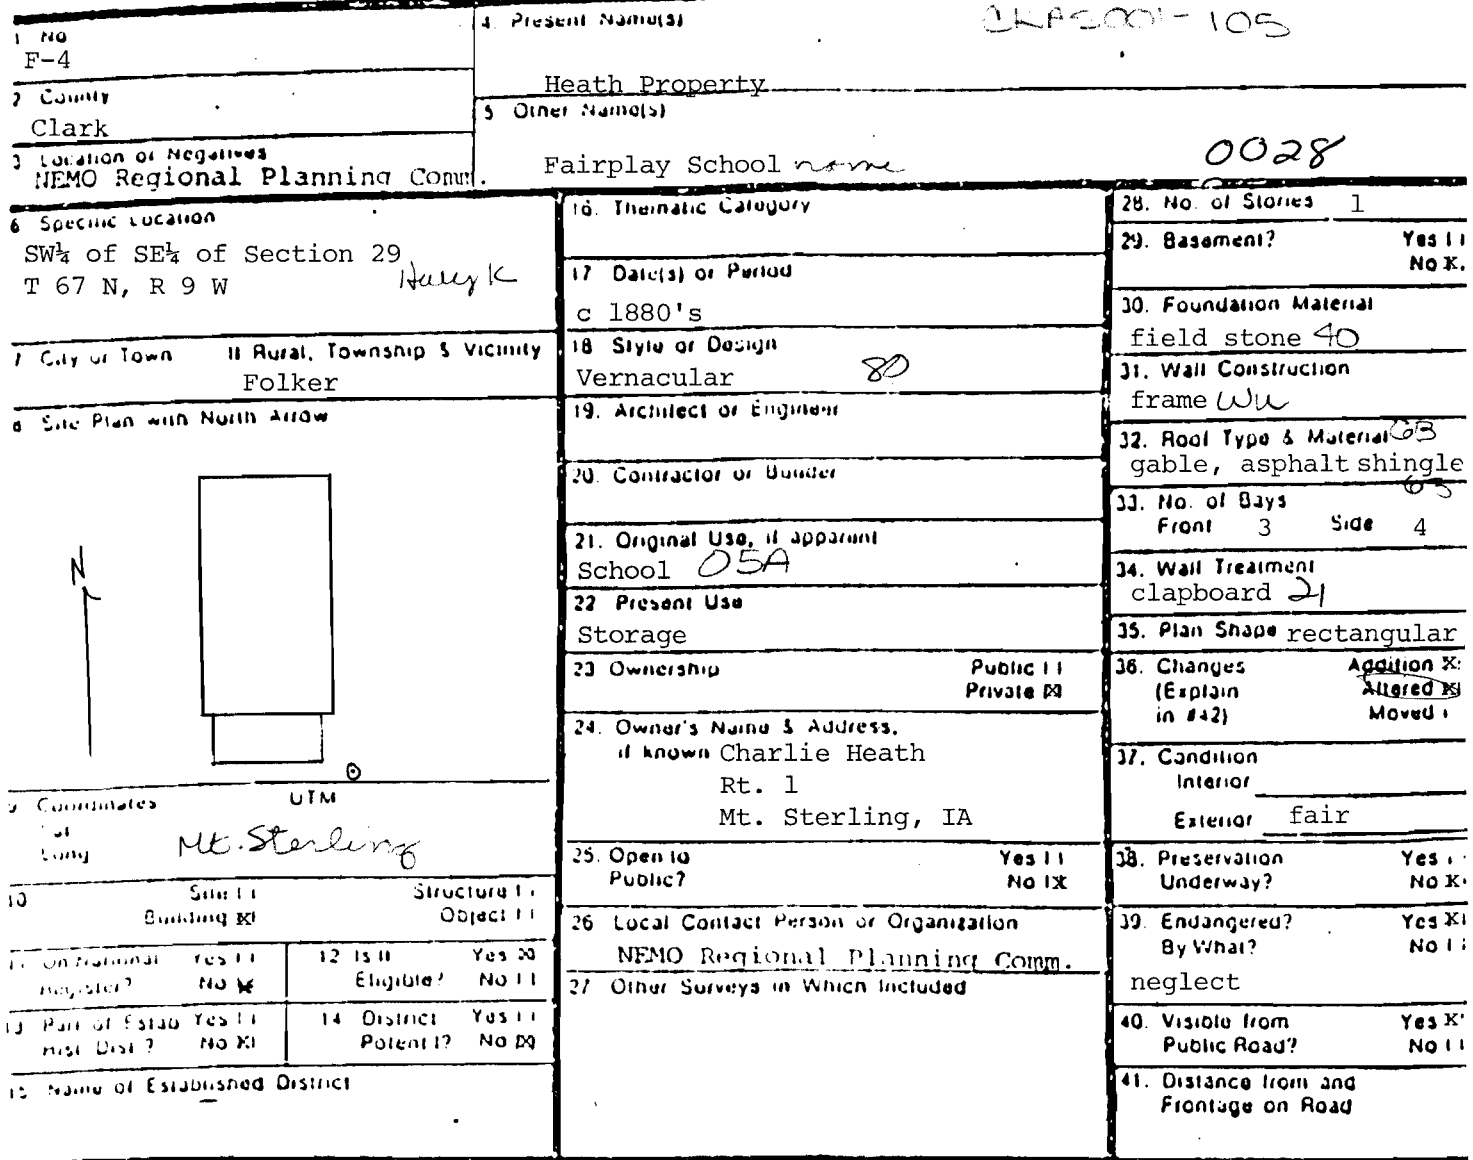 1 No
F-4
4. Present Name(s)
105
Heath Property
2 County
Clark
5 Other Name(s)
3 Location of Negatives
NEMO Regional Planning Comm.
Fairplay School name
0028
6 Specific Location
SW¼ of SE¼ of Section 29
T 67 N, R 9 W
7 City or Town If Rural, Township & Vicinity
Folker
8 Site Plan with North Arrow
N
9 Coordinates UTM
Lat
Long
Mt. Sterling
10 Site Structure
Building X Object
11 On National Register? Yes No X
12 Is It Eligible? Yes X No
13 Part of Estab Hist. Dist.? Yes No X
14 District Potent'l? Yes No X
15 Name of Established District
16. Thematic Category
17 Date(s) or Period
c 1880's
18 Style or Design
Vernacular 80
19. Architect or Engineer
20. Contractor or Builder
21. Original Use, if apparent
School 05A
22 Present Use
Storage
23 Ownership Public
Private X
24. Owner's Name & Address,
if known Charlie Heath
Rt. 1
Mt. Sterling, IA
25. Open to Yes
Public? No X
26 Local Contact Person or Organization
NEMO Regional Planning Comm.
27 Other Surveys in Which Included
28. No. of Stories 1
29. Basement? Yes
No X
30. Foundation Material
field stone 40
31. Wall Construction
frame
32. Roof Type & Material GB
gable, asphalt shingle
63
33. No. of Bays
Front 3 Side 4
34. Wall Treatment
clapboard 21
35. Plan Shape rectangular
36. Changes Addition X
(Explain Altered X
in #42) Moved
37. Condition
Interior
Exterior fair
38. Preservation Yes
Underway? No X
39. Endangered? Yes X
By What? No
neglect
40. Visible from Yes X
Public Road? No
41. Distance from and
Frontage on Road